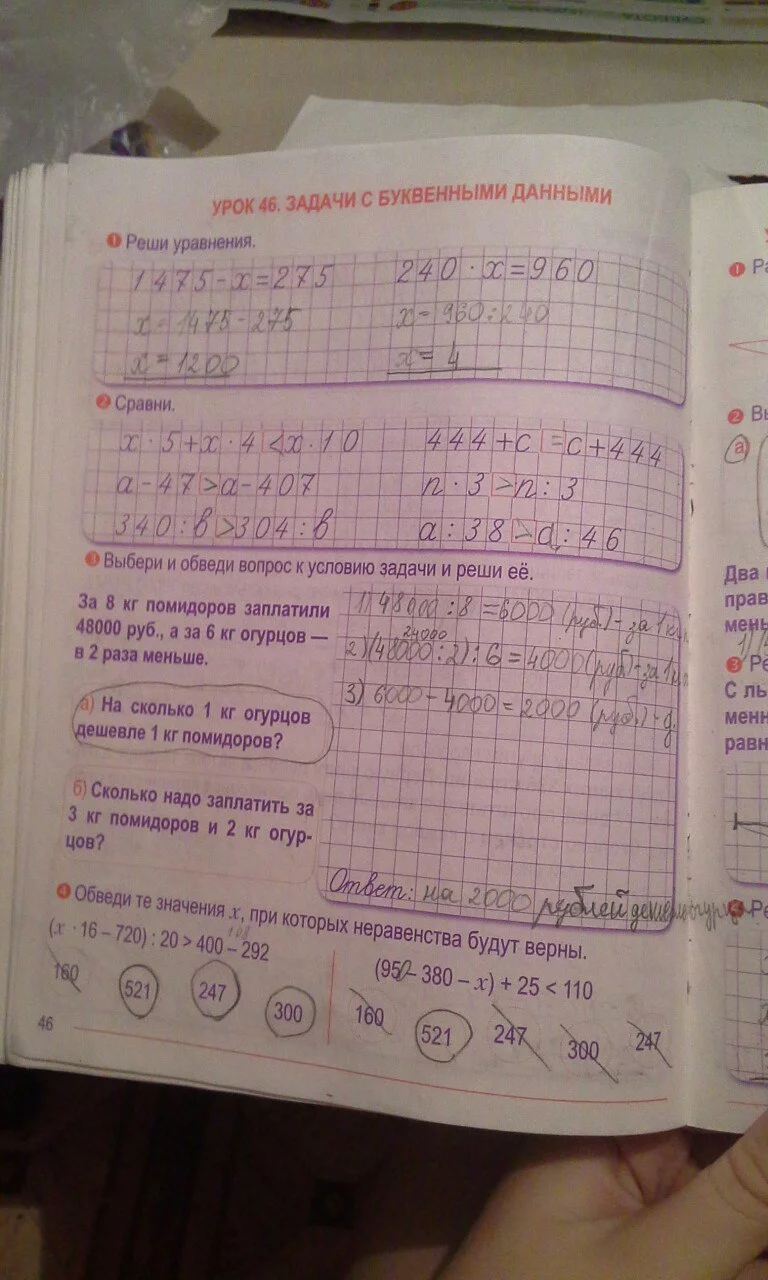 УРОК 46. ЗАДАЧИ С БУКВЕННЫМИ ДАННЫМИ
1 Реши уравнения.
1475-x=275
x=1475-275
x=1200
240·x=960
x=960:240
x=4
2 Сравни.
x·5+x·4<x·10
a-47>a-407
340:в>304:в
444+c=c+444
n·3>n:3
a:38>a:46
3 Выбери и обведи вопрос к условию задачи и реши её.
За 8 кг помидоров заплатили
48000 руб., а за 6 кг огурцов —
в 2 раза меньше.
а) На сколько 1 кг огурцов
дешевле 1 кг помидоров?
б) Сколько надо заплатить за
3 кг помидоров и 2 кг огур-
цов?
1) 48000:8=6000 (руб.)- за 1
24000
2)(48000:2):6=4000(руб)-за 1
3) 6000-4000=2000 (руб.)-д.
Ответ: на 2000 рублей
4 Обведи те значения x, при которых неравенства будут верны.
108
(x · 16 – 720) : 20 > 400 – 292
160 521 247 300
(950 – 380 – x) + 25 < 110
160 521 247 300 247
46
1 Ра
2 Вы
а)
Два
прав
мень
1)
3 Ре
С ль
менн
равн
Ре